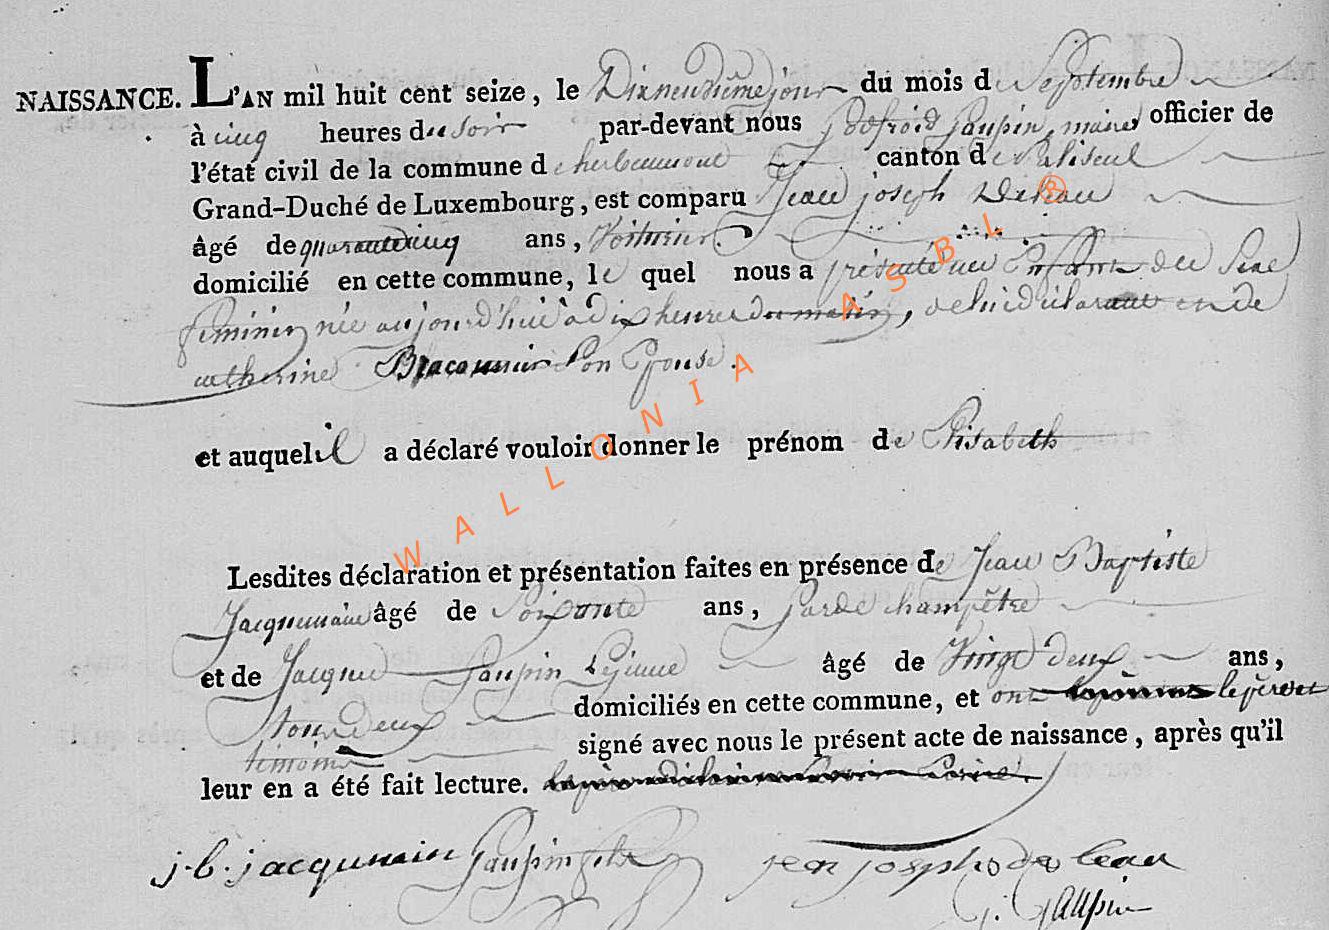 NAISSANCE. L'AN mil huit cent seize, le Dixneuvieme jour du mois de Septembre
à cinq heures du soir par-devant nous godfroid Gaupin, maire officier de
l'état civil de la commune de herbeumont canton de Paliseul
Grand-Duché de Luxembourg, est comparu Jean joseph
âgé de quarantecinq ans, Voiturier
domicilié en cette commune, le quel nous a présenté un Enfant du Sexe
feminin née aujourd'hui à dix heures du matin, de lui déclarant et de
catherine Braconnier Son Epouse.
et auquel il a déclaré vouloir donner le prénom de Elisabeth
Lesdites déclaration et présentation faites en présence de Jean Baptiste
Jacquemain âgé de Soixante ans, garde champêtre
et de Jacque Gaupin Lejeune âgé de Vingt deux ans,
tous deux domiciliés en cette commune, et ont le père et
témoins signé avec nous le présent acte de naissance, après qu'il
leur en a été fait lecture.
j. b. jacqumain Gaupin jean joseph
G. Gaupin
WALLONIA ASBL ®